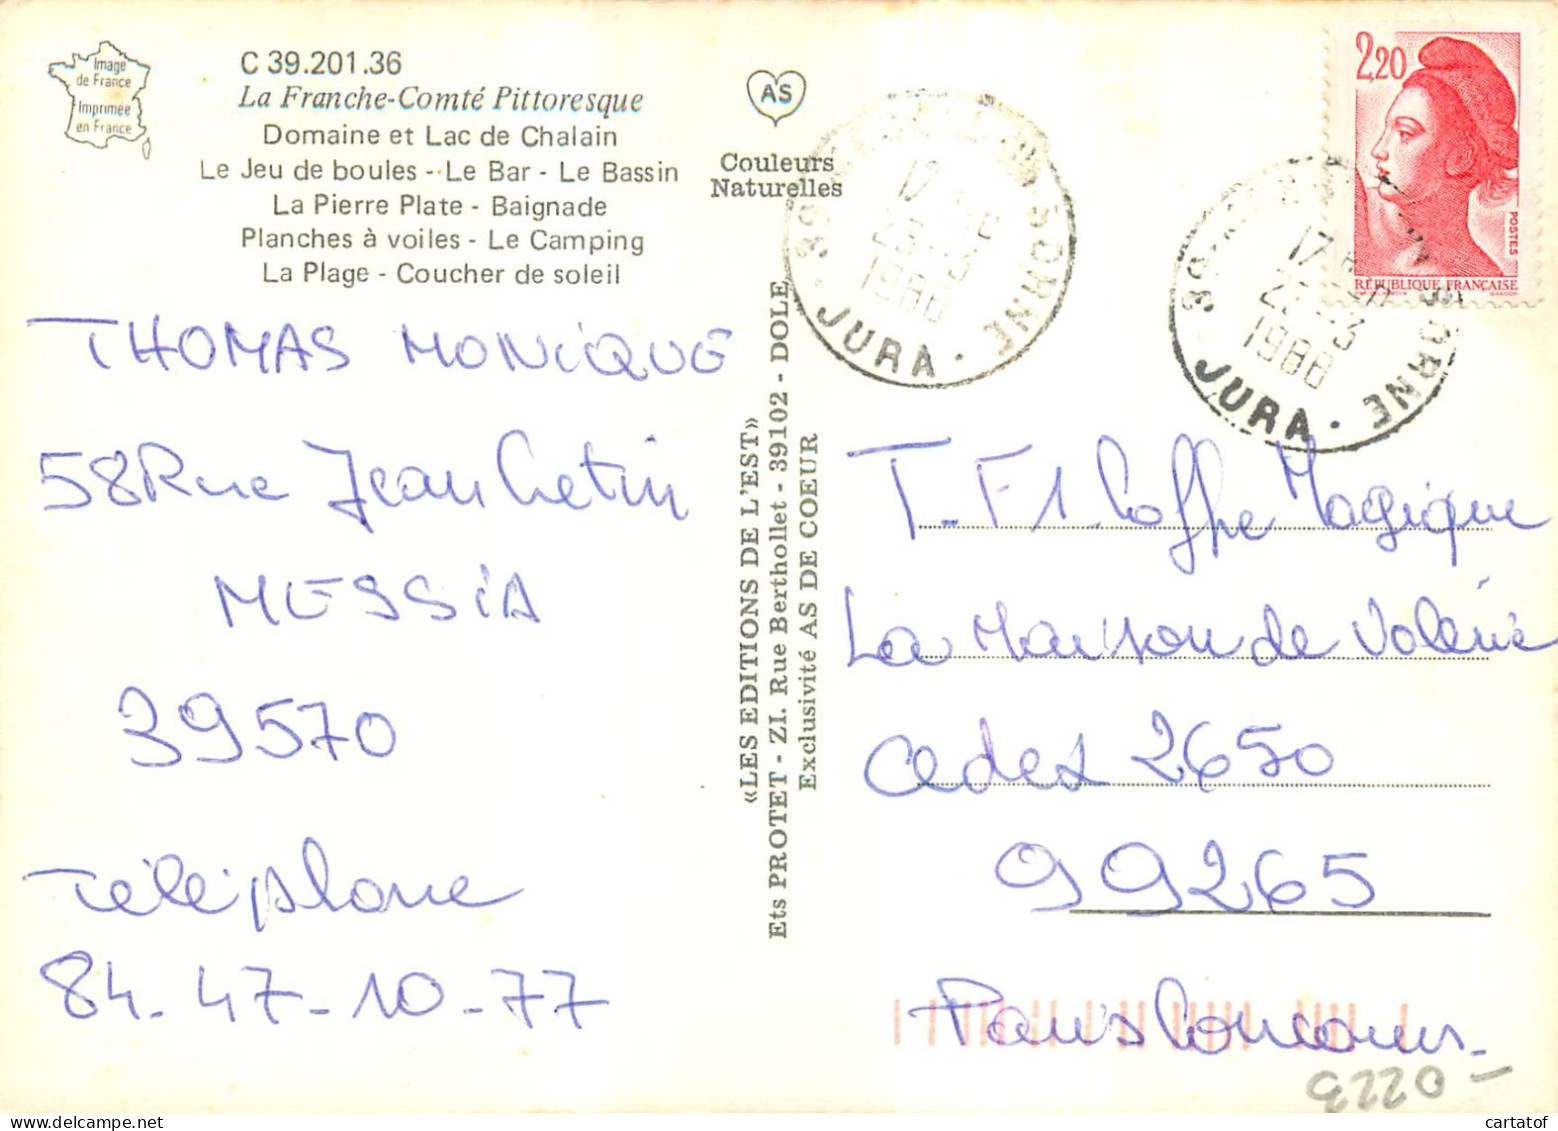 Image
de France
Imprimée
en France
C 39.201.36
La Franche-Comté Pittoresque
Domaine et Lac de Chalain
Le Jeu de boules -- Le Bar - Le Bassin
La Pierre Plate - Baignade
Planches à voiles - Le Camping
La Plage - Coucher de soleil
AS
Couleurs
Naturelles
THOMAS MONIQUE
58 Rue Jean Cretin
MESSIA
39570
Téléphone
84.47.10.77
«LES EDITIONS DE L'EST»
Ets PROTET - ZI. Rue Berthollet - 39102 - DOLE
Exclusivité AS DE COEUR
SORNE
39
17
23-3
1988
JURA
2,20
POSTES
RÉPUBLIQUE FRANÇAISE
SORNE
39
17
1988
JURA
T-F1. Coffre Magique
La Maison de Valérie
Cedex 2650
99265
Paris Concours
3220
cartatof